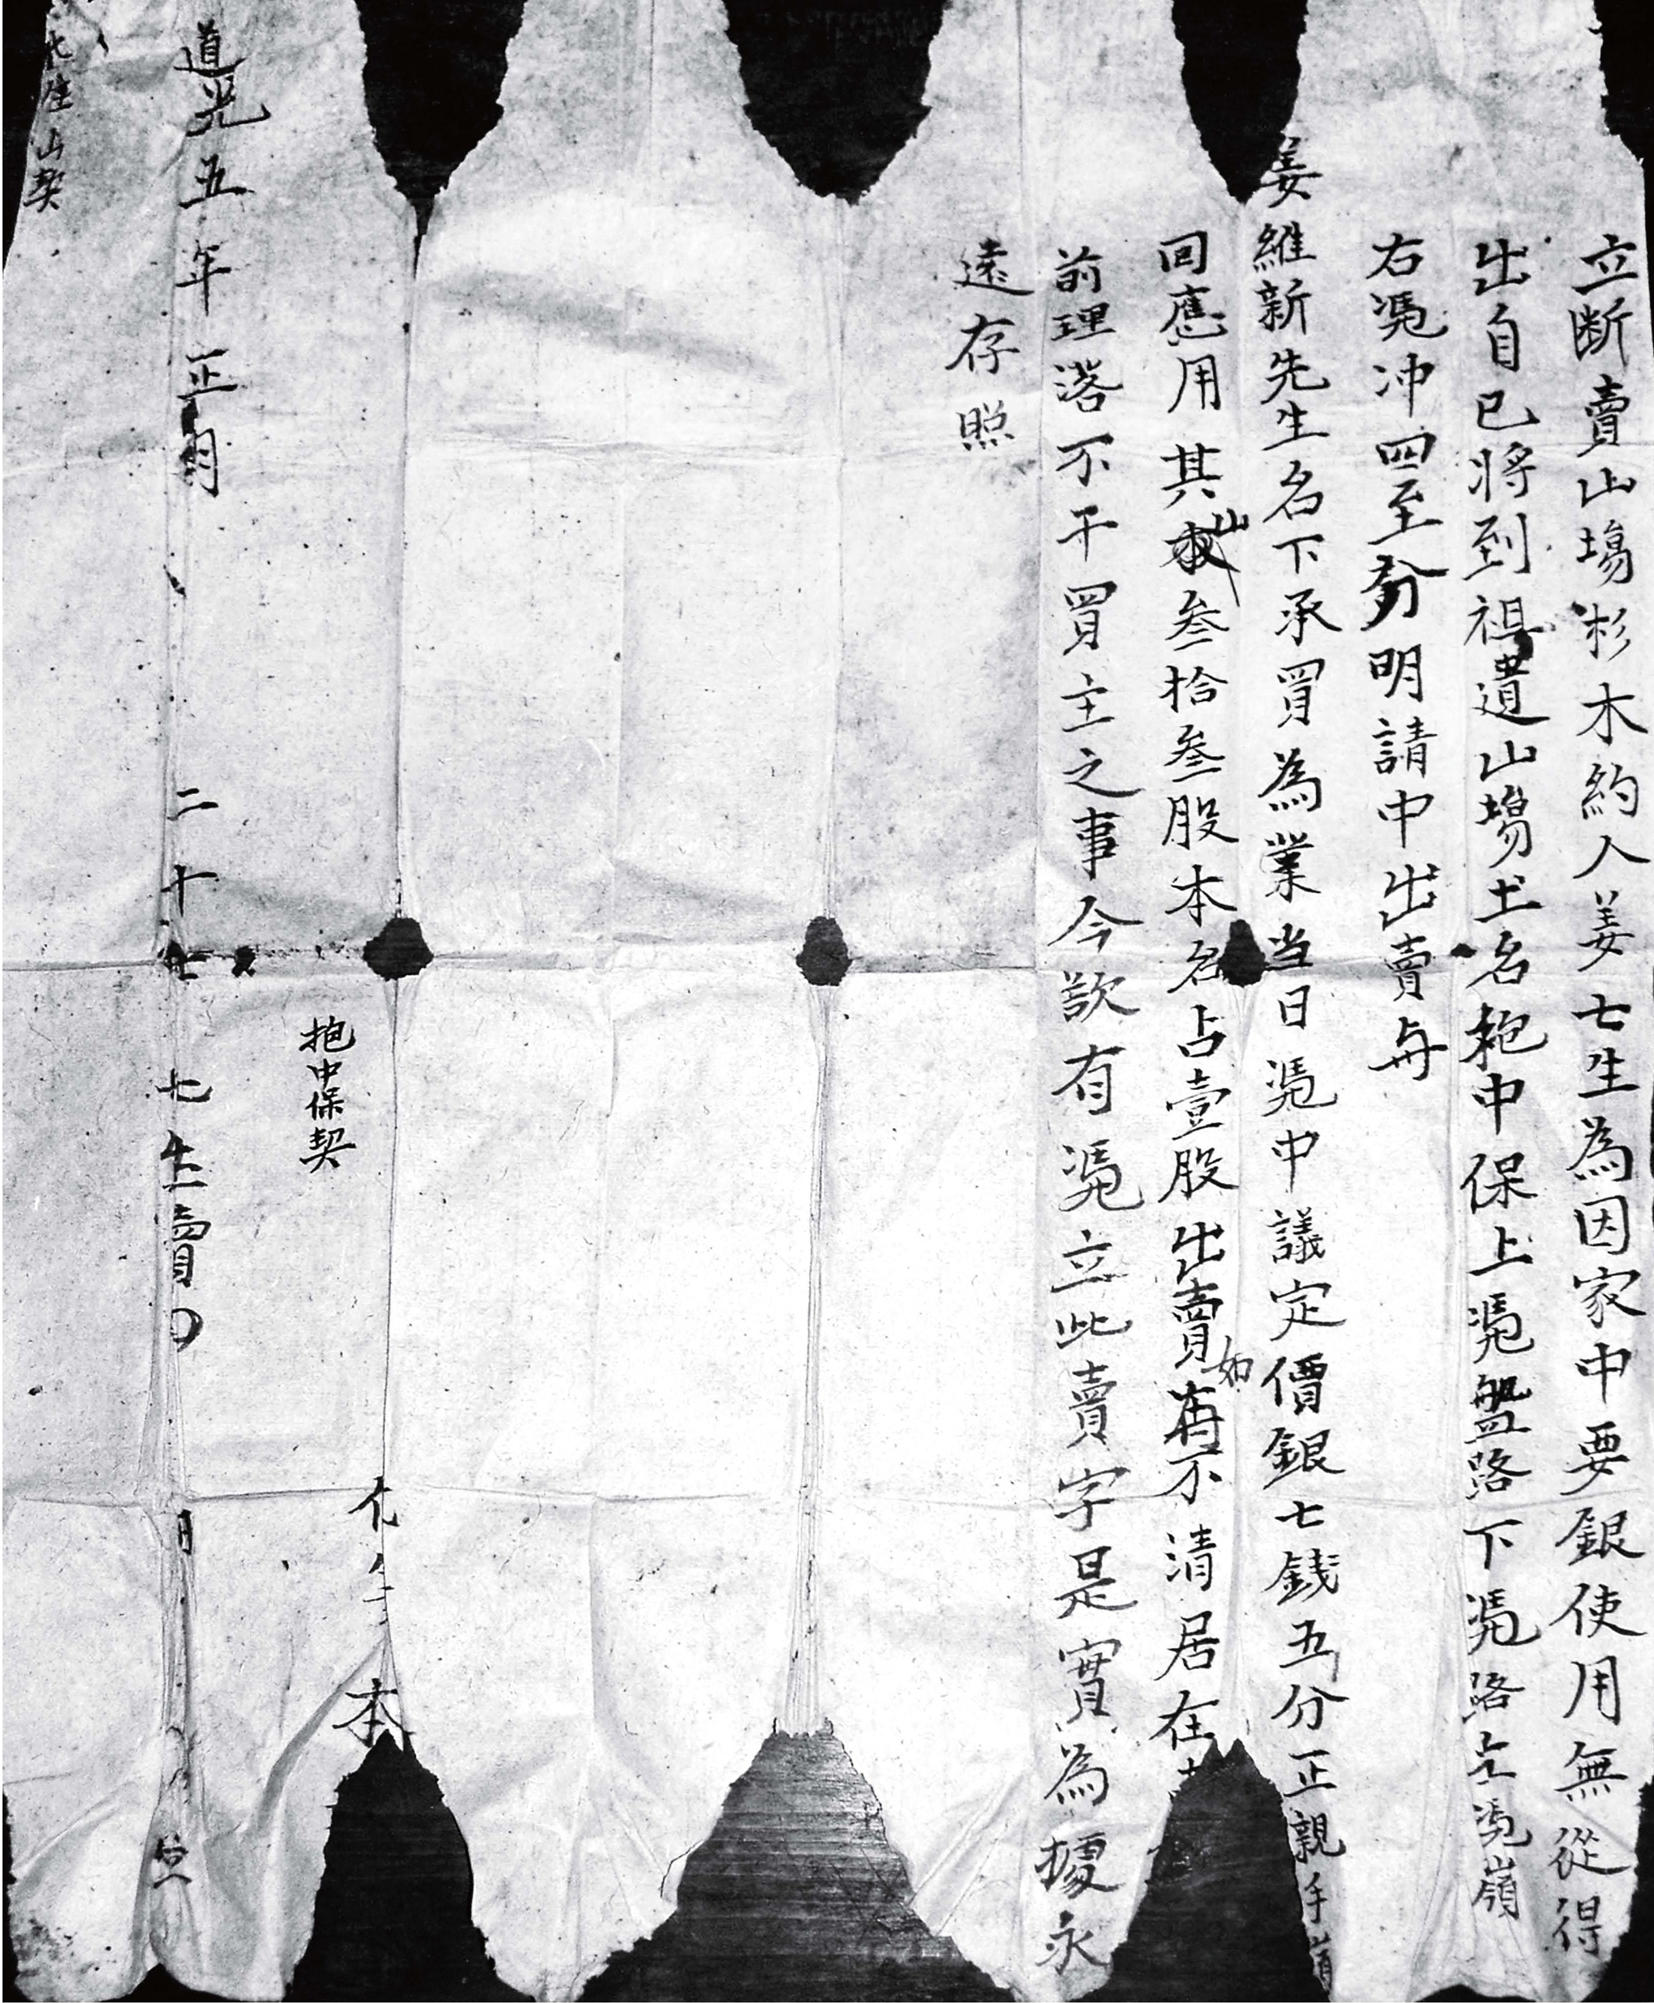 立断賣山塲杉木約人姜七生為因家中要銀使用無從得
出自己將到祖遺山塲土名抱中保上凴盤路下凴路左凴嶺
右凴冲四至分明請中出賣與
姜維新先生名下承買為業当日凴中議定價銀七錢五分正親手
回應用其山叁拾叁股本名占壹股出賣如有不清居在
前理落不干買主之事今欲有凴立此賣字是實為據永
遠存照
抱中保契
道光五年正月二十七 七生賣
化生山契